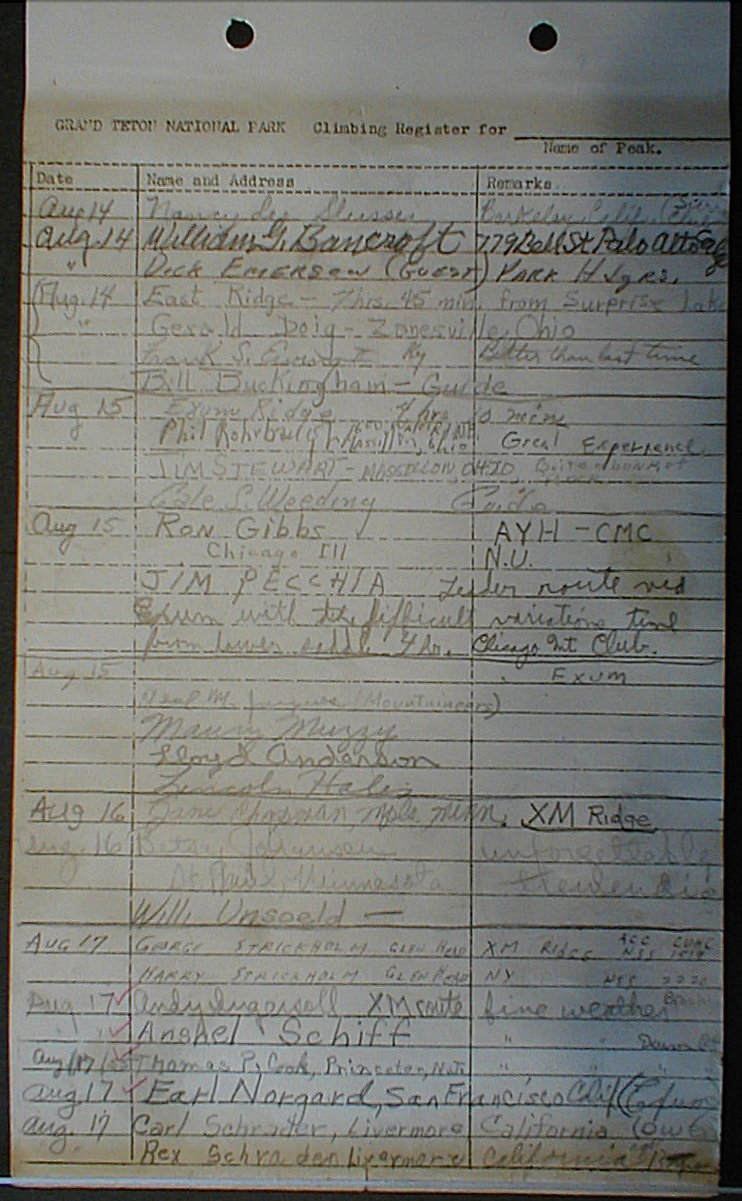 GRAND TETON NATIONAL PARK Climbing Register for
Name of Peak.
Date Name and Address Remarks
Aug 14 Nancy Lee Berkeley Calif
Aug. 14 William G. Bancroft 779 Bell St Palo Alto
" DICK EMERSON (GUEST) PARK HDQRS.
Aug. 14 East Ridge - 7 hrs. 45 min. from Surprise Lake
" Gerald Doig - Zanesville, Ohio
" Frank S. Ky Better than last time
Bill Buckingham - Guide
Aug 15 Exum Ridge 7 hrs 10 min
Phil Massillon, Ohio Great Experience
JIM STEWART - MASSILLON, OHIO, Quite a bunch of
Cole S. Weeding Guide
Aug 15 RON GIBBS AYH - CMC
Chicago Ill N.U.
JIM PECCHIA route
Exum with the difficult variations time
from lower saddle 4 hr. Chicago Mt Club.
Aug 15 EXUM
Neal M. (Mountaineers)
Maury Muzzy
Lloyd Anderson
Lincoln
Aug 16 Jane Chapman Mpls, Minn. XM Ridge
Aug. 16 unforgettable
St. Paul, Minnesota tremendous
Willi Unsoeld —
AUG 17 GEORGE STRICKHOLM GLEN HEAD XM RIDGE
HARRY STRICKHOLM GLEN HEAD NY NSS 2220
Aug 17 Andy Ingersoll XM route fine weather
" " Anshel Schiff "
Aug/17/ Thomas P. Cook, Princeton, " " "
Aug 17 Earl Norgard, San Francisco Calif (Exum)
Aug. 17 Carl Schrader, Livermore California
Rex Schrader Livermore California